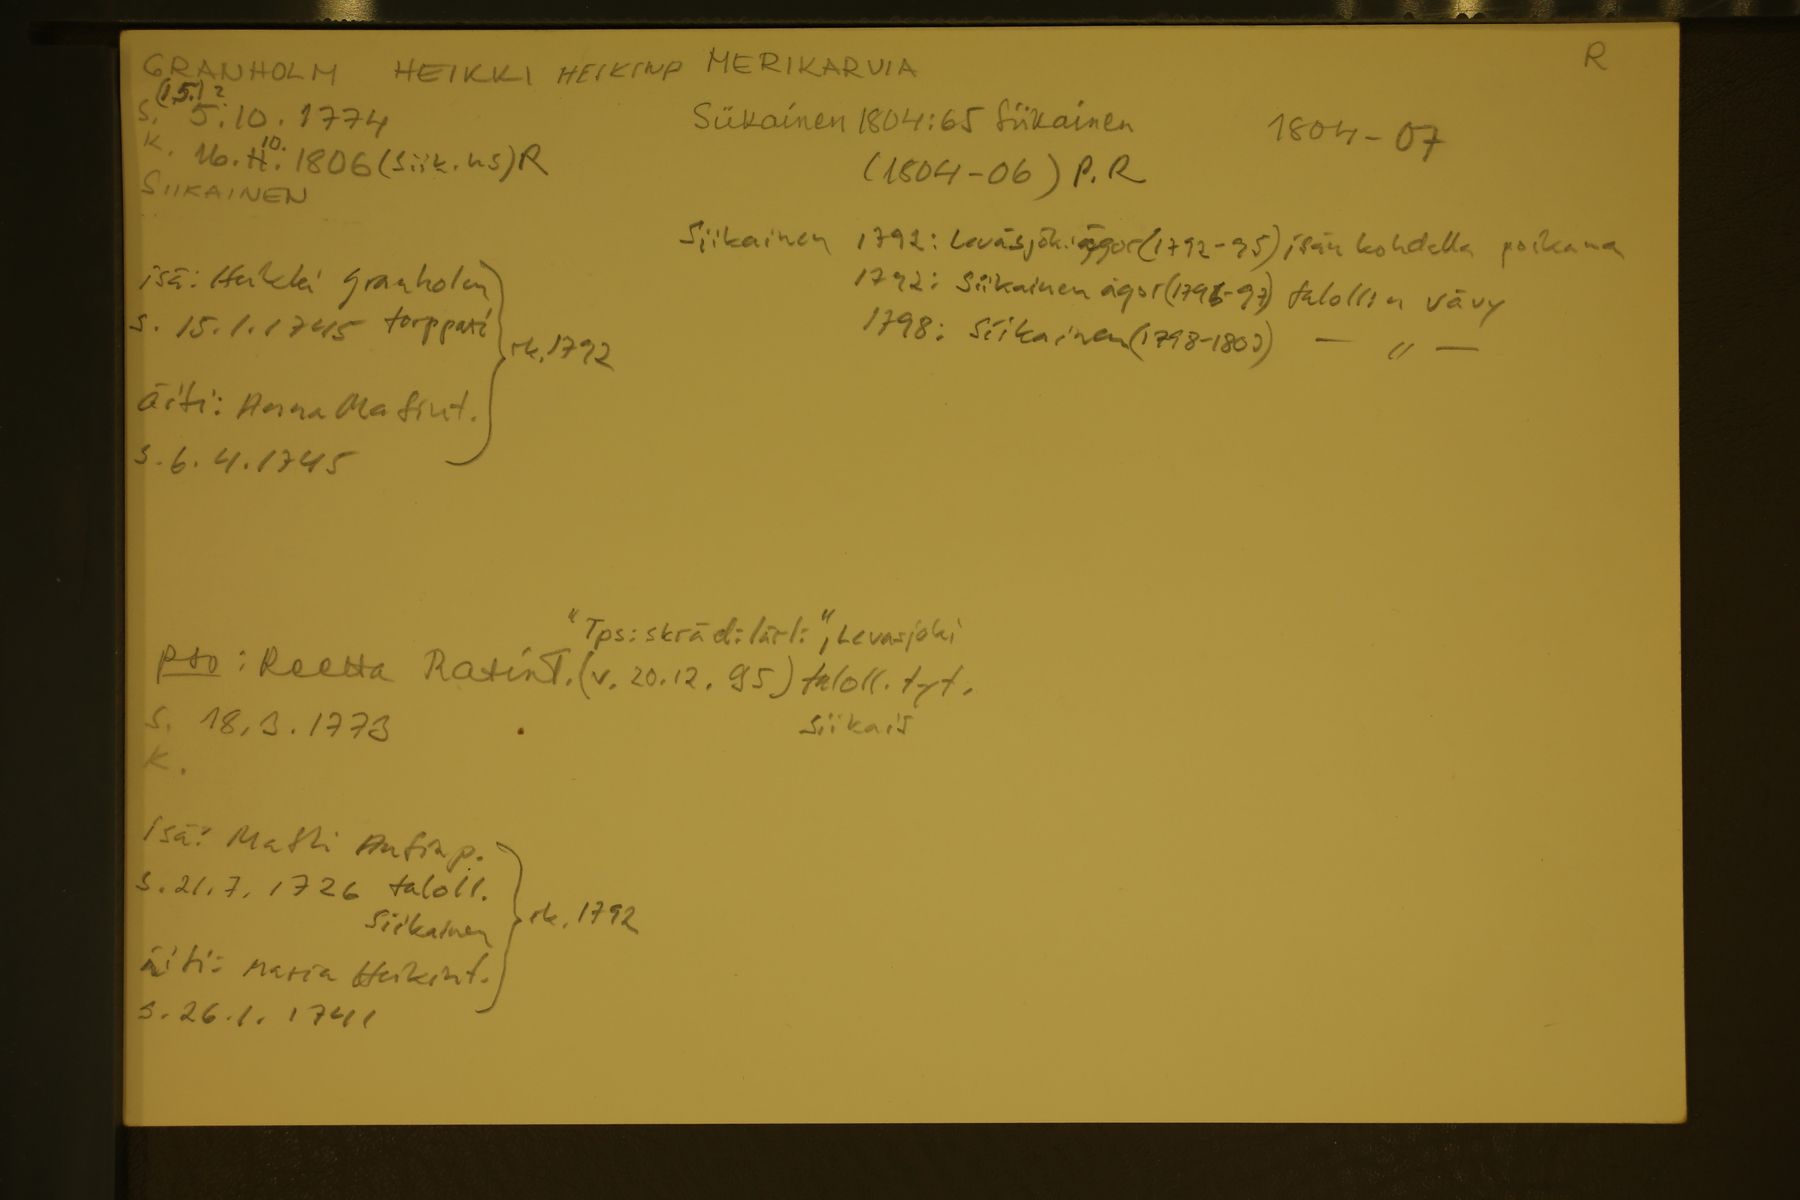 GRANHOLM HEIKKI HEIKINP MERIKARVIA R
(15.)?
s. 5.10.1774
K. 16.H. 10. 1806 (Siik.hs) R
SIIKAINEN
Siikainen 1804:65 Siikainen 1804-07
(1804-06) P.R
Siikainen 1792: Leväsjöki ägor (1792-95) isän kohdalla poikana
1792: Siikainen ägor (1796-97) talollisen vävy
1798: Siikainen (1798-1803) — " —
isä: Heikki Granholm
s. 15.1.1745 torppari
rk. 1792
äiti: Anna Matint.
s. 6.4.1745
"Tps: skräd: lärl:", Levasjoki
pso: Reetta Matint. (v. 20.12.95) taloll. tyt.
s. 18.3.1773 Siikais
K.
isä: Matti Antinp.
s. 21.7.1726 taloll.
Siikainen
rk. 1792
äiti: Maria Heikint.
s. 26.1.1741